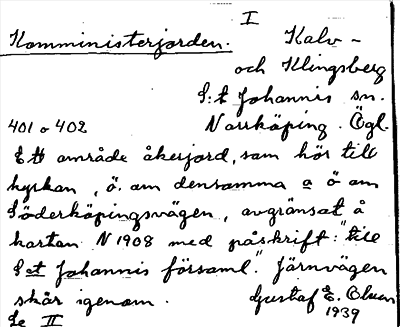 I
Komministerjorden. Kalv-
och Klingsberg
S:t Johannis sn.
401 o 402 Norrköping. Ögl.
Ett område åkerjord, som hör till
kyrkan, ö. om densamma o ö om
Söderköpingsvägen, avgränsat å
kartan N 1908 med påskrift: "till
S:et Johannis församl." Järnvägen
skär igenom. Gustaf E. Olsson
Se II 1939